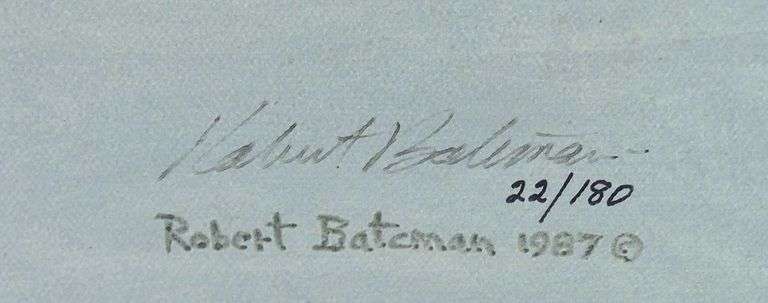 Robert Bateman
22/180
Robert Bateman 1987 ©